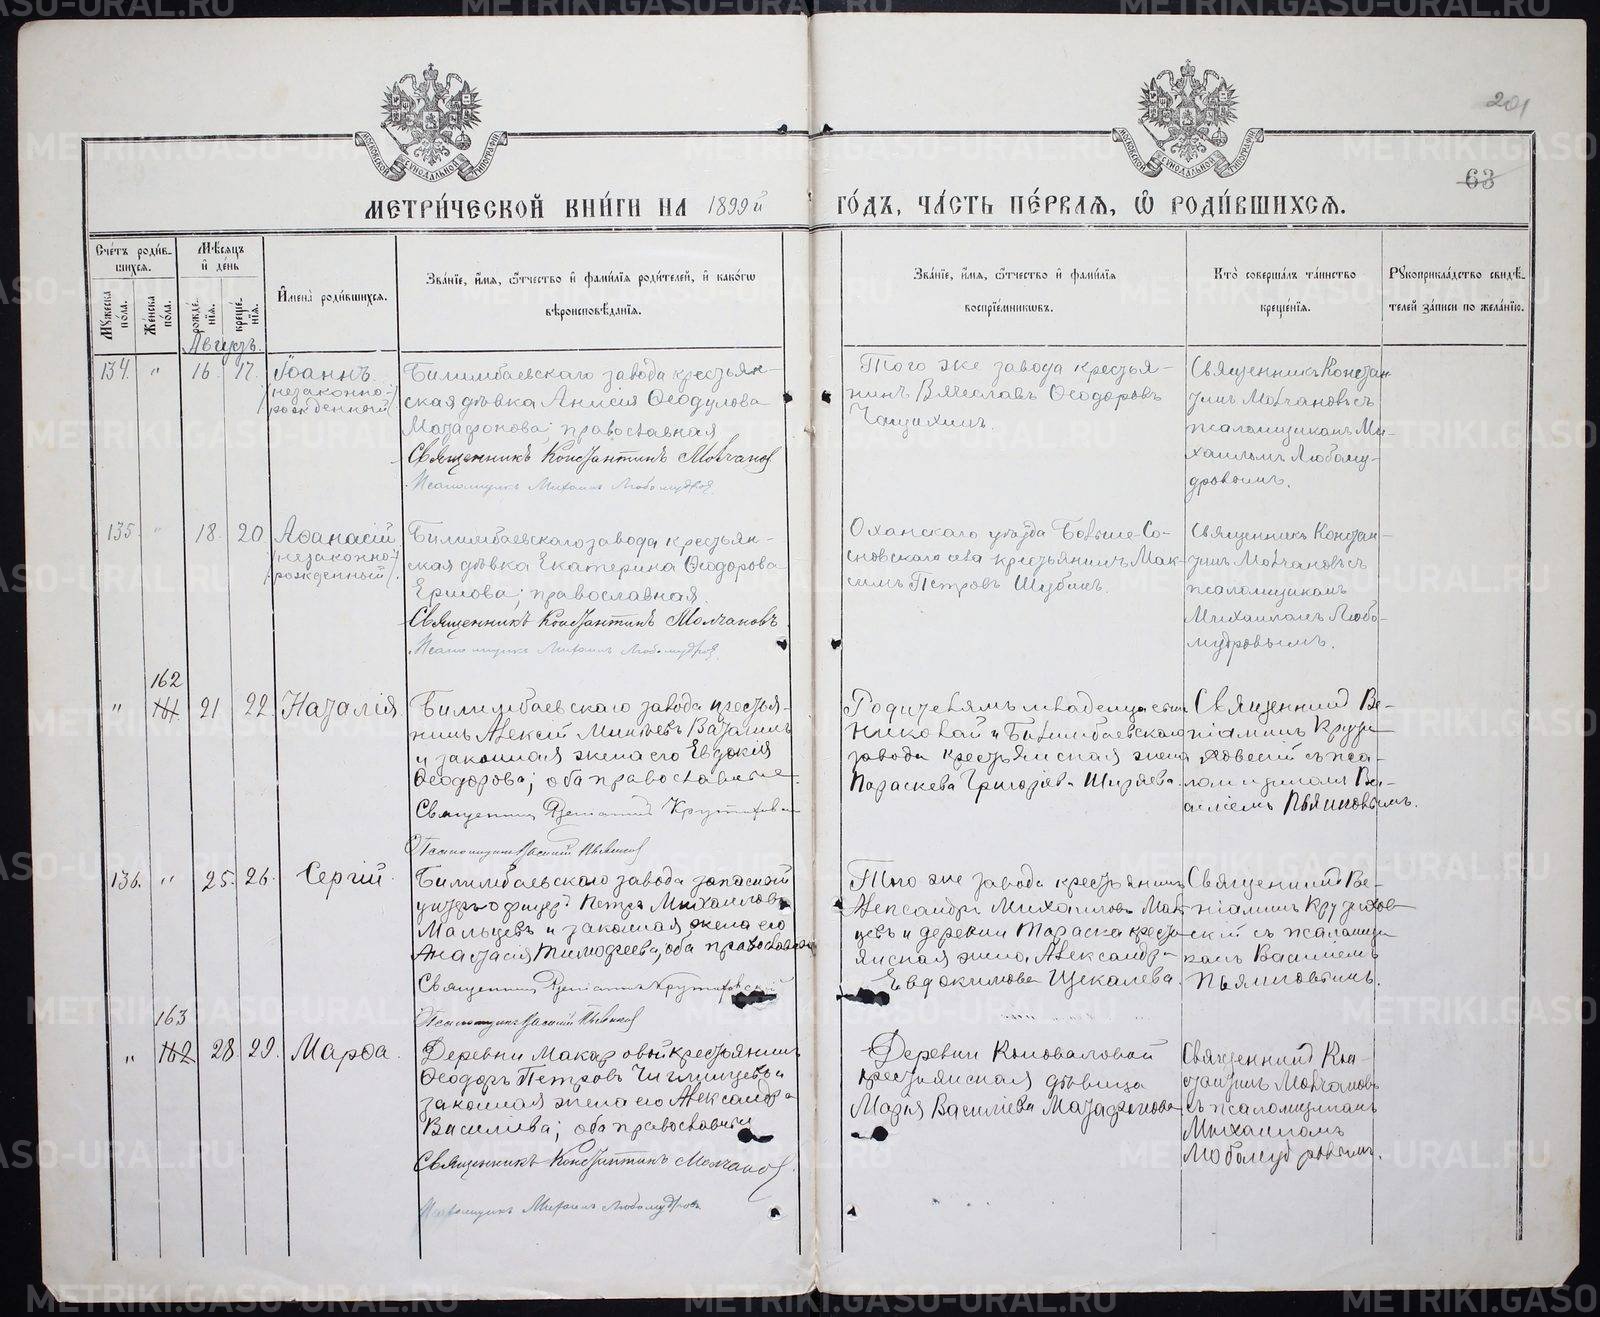 201
63
МОСКОВСКОЙ СѴНОДАЛЬНОЙ ТИПОГРАФІИ
МОСКОВСКОЙ СѴНОДАЛЬНОЙ ТИПОГРАФІИ
МЕТРИ́ЧЕСКОЙ КНИ́ГИ НА 1899й ГО́ДЪ, ЧА́СТЬ ПЕ́РВАЯ, Ѡ РОДИ́ВШИХСЯ.
Сче́тъ роди́вшихся.
Мужеска по́ла.
Же́нска по́ла.
Мѣ́сяцъ и де́нь
рожде́нія.
креще́нія.
Имена̀ роди́вшихся.
Зва́ніе, и́мя, ѻ́тчество и фами́лія роди́телей, и како́гѡ вѣроисповѣ́данія.
Зва́ніе, и́мя, ѻ́тчество и фами́лія воспріе́мниковъ.
Кто̀ соверша́лъ та́инство креще́нія.
Рукоприкла́дство свидѣ́телей за́писи по жела́нію.
Августъ.
134. " 16. 17.
Іоаннъ
/незаконно-
рожденный/
Билимбаевскаго завода крестьян-
ская дѣвка Анисія Ѳеодулова
Матафонова; православная
Священникъ Константинъ Молчановъ
Псаломщикъ Михаилъ Любомудровъ
Того же завода крестья-
нинъ Вячеславъ Ѳеодоровъ
Чащихинъ.
Священникъ Констан-
тинъ Молчановъ съ
псаломщикомъ Ми-
хаиломъ Любому-
дровымъ.
135. " 18. 20
Аѳанасій
/незаконно-
рожденный/.
Билимбаевскаго завода крестьян-
ская дѣвка Екатерина Ѳеодорова
Ершова; православная.
Священникъ Константинъ Молчановъ.
Псаломщикъ Михаилъ Любомудровъ
Оханскаго уѣзда Больше-Со-
сновскаго села крестьянинъ Мак-
симъ Петровъ Шубинъ.
Священникъ Констан-
тинъ Молчановъ съ
псаломщикомъ
Михаиломъ Любо-
мудровымъ.
162
" 161 21 22.
Наталія
Билимбаевскаго завода крестья-
нинъ Алексій
и законная жена его Евдокія
Ѳеодорова; оба православные
Священникъ Веніаминъ Крутиховскій
Псаломщикъ Василій Пьянковъ
Родителямъ младенца сынъ
Николай и Билимбаевскаго
завода крестьянская жена
Параскева Григорьева Ширяева.
Священникъ Ве-
ніаминъ Крути-
ховскій съ пса-
ломщикомъ Ва-
силіемъ Пьянковымъ.
136. " 25. 26.
Сергій.
Билимбаевскаго завода запасной
унтеръ-офицеръ Петръ Михаиловъ
Мальцевъ и законная жена его
Анастасія Тимоѳеева, оба православные
Священникъ Веніаминъ Крутиховскій
Псаломщикъ Василій Пьянковъ
Того же завода крестьянинъ
Александръ Михаиловъ Маль-
цевъ и деревни Тараска кресть-
янская жена Александра
Евдокимова Щекалева.
Священникъ Ве-
ніаминъ Крутихов-
скій съ псаломщи-
комъ Василіемъ
Пьянковымъ.
163
" 162 28. 29.
Марѳа.
Деревни Макаровой крестьянинъ
Ѳеодоръ Петровъ и
законная жена его Александра
Васильева; оба православные
Священникъ Константинъ Молчановъ.
Псаломщикъ Михаилъ Любомудровъ
Деревни Коноваловой
крестьянская дѣвица
Марія Василіева Матафонова
Священникъ Кон-
стантинъ Молчановъ
съ псаломщикомъ
Михаиломъ
Любомудровымъ.
METRIKI.GASO-URAL.RU